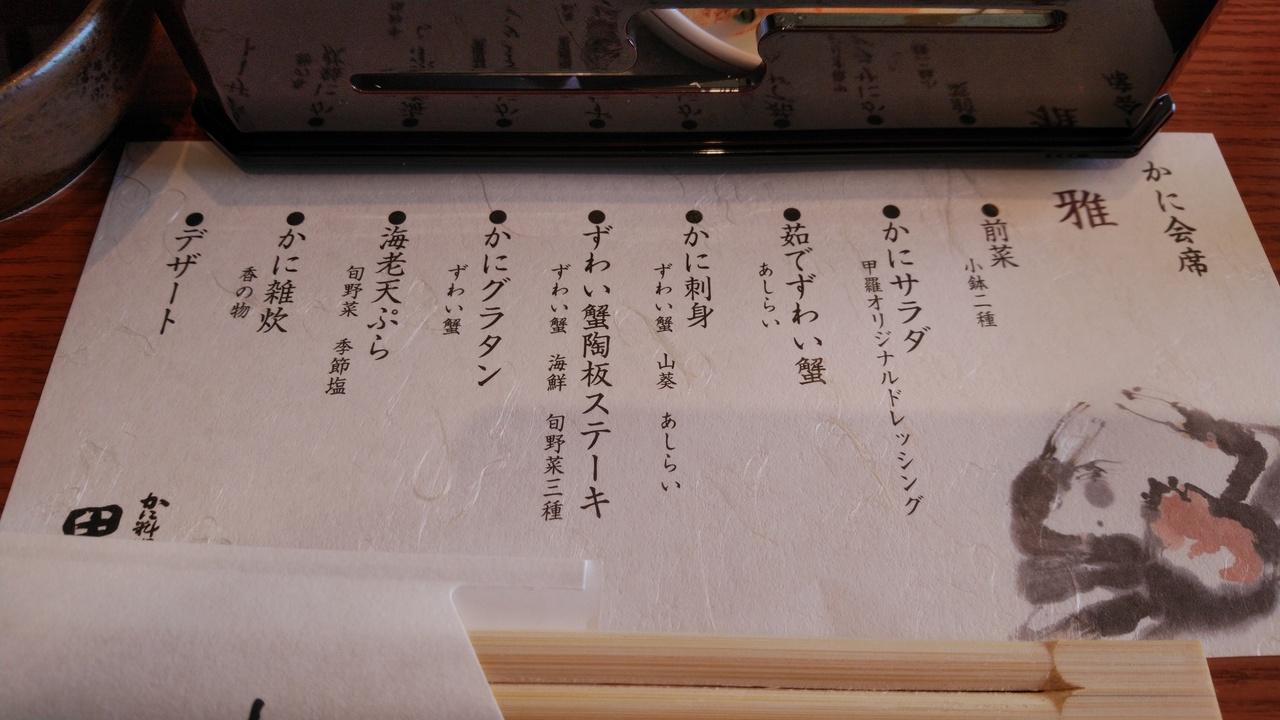 かに会席
雅
●前菜
小鉢二種
●かにサラダ
甲羅オリジナルドレッシング
●茹でずわい蟹
あしらい
●かに刺身
ずわい蟹　山葵　あしらい
●ずわい蟹陶板ステーキ
ずわい蟹　海鮮　旬野菜三種
●かにグラタン
ずわい蟹
●海老天ぷら
旬野菜　季節塩
●かに雑炊
香の物
●デザート
かに料